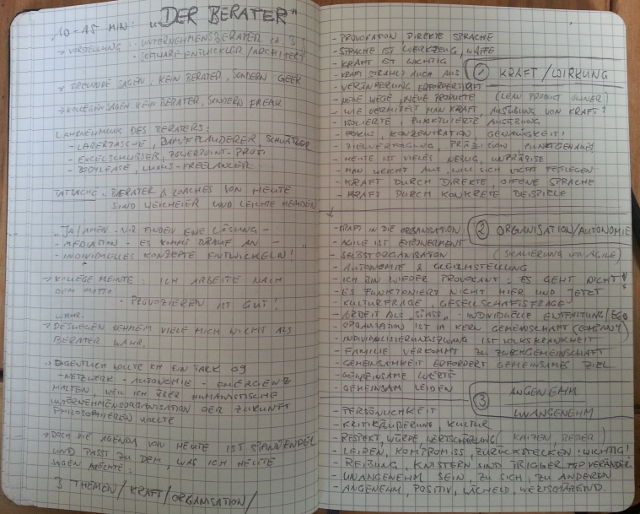 10-15 MIN: "DER BERATER"
→ VORSTELLUNG: UNTERNEHMENSBERATER
SOFTWAREENTWICKLER/ARCHITEKT
→ FREUNDE SAGEN, KEIN BERATER, SONDERN GEEK
→ KOLLEGEN SAGEN KEIN BERATER, SONDERN FREAK
WAHRNEHMUNG DES BERATERS:
- LABERTASCHE, DAMPFPLAUDERER, SCHWÄTZER
- EXCELSCHUBSER, POWERPOINT-PROFI
- LUXUS-FREELANCER
TATSACHE - BERATER & COACHES VON HEUTE
SIND WEICHEIER UND LEICHTE
"JA/AMEN - WIR FINDEN EINE LÖSUNG -
- MEDIATION - ES KOMMT DRAUF AN -
- INDIVIDUELLES KONZEPTE ENTWICKELN!
→ KOLLEGE MEINTE ICH ARBEITE NACH
DEM MOTTO
- PROVOZIEREN IST GUT!
WAHR.
→ DESWEGEN NEHMEN VIELE MICH NICHT ALS
BERATER WAHR.
→ EIGENTLICH WOLLTE ICH EIN TALK
- NETZWERK - AUTONOMIE - EMERGENZ
HALTEN, WEIL ICH ÜBER HUMANISTISCHE
UNTERNEHMENSORGANISATION DER ZUKUNFT
PHILOSOPHIEREN WOLLTE
→ DOCH DIE AGENDA VON HEUTE IST SPANNENDER
UND PASST ZU DEM, WAS ICH HEUTE
SAGEN MÖCHTE:
3 THEMEN / KRAFT / ORGANISATION /
- PROVOKATION DIREKTE SPRACHE
- SPRACHE IST WERKZEUG, WAFFE
- KRAFT IST WICHTIG
- KRAFT STRAHLT AUCH AUS
① KRAFT / WIRKUNG
- VERÄNDERUNG ERFORDERT KRAFT
- NEUE WEGE, NEUE PRODUKTE (KEIN PRODUKT OWNER)
- WIE VERMITTELT MAN KRAFT, AUSÜBUNG VON KRAFT?
- PUNKTUIERTE AUSÜBUNG
- FOKUS, KONZENTRATION GENAUIGKEIT!
- ZIELVERFOLGUNG, PRÄZISION PUNKTGENAU
- HEUTE IST VIELES NEBLIG, UNPRÄZISE
- MAN WEICHT AUS, WILL SICH NICHT FESTLEGEN
- KRAFT DURCH DIREKTE, OFFENE SPRACHE
- KRAFT DURCH KONKRETE BEISPIELE
- KRAFT IN DIE ORGANISATION
② ORGANISATION/AUTONOMIE
- AGILE IST
- SELBSTORGANISATION (SKALIERUNG VON AGILE)
- AUTONOMIE & GLEICHSTELLUNG
- ICH BIN WIEDER PROVOKANT: ES GEHT NICHT!
- ES FUNKTIONIERT NICHT HIER UND JETZT
- KULTURFRAGE, GESELLSCHAFTSFRAGE
- ARBEIT ALS "SINN" - INDIVIDUELLE ENTFALTUNG/EGO
- ORGANISATION IST IM KERN GEMEINSCHAFT (COMPANY)
- INDIVIDUALISIERUNG IST VOLKSKRANKHEIT
- FAMILIE VERKOMMT ZU ZWECKGEMEINSCHAFT
- GEMEINSAMKEIT ERFORDERT GEMEINSAMES ZIEL
- GEMEINSAME WERTE
- GEMEINSAM LEIDEN
③ ANGENEHM
UNANGENEHM
- PERSÖNLICHKEIT
- KRITIKÄUSSERUNG KULTUR
- RESPEKT, WÜRDE, WERTSCHÄTZUNG
- LEIDEN, KOMPROMISS, ZURÜCKSTECKEN - WICHTIG!
- REIBUNG, KNISTERN SIND TRIGGER
- UNANGENEHM SEIN, ZU SICH, ZU ANDEREN
- ANGENEHM, POSITIV, LÄCHELN, WERTSCHÄTZEND